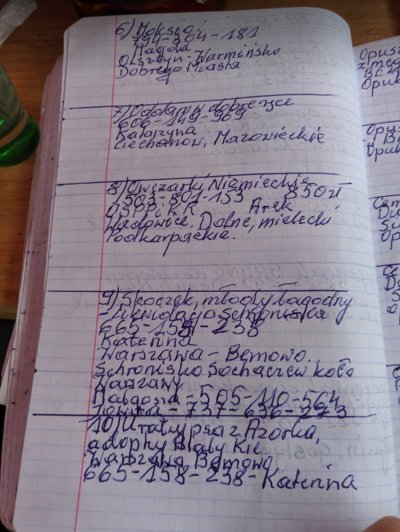 6) Moksio
794-304-181
Magda
Olsztyn-Warmińsko
Dobrego Miasta
7) Oddamy dobre ręce
606-149-969
Katarzyna
Ciechanów, Mazowieckie
8) Owczarki Niemieckie
503-801-153 850zł
Arek
Wadowice Dolne, mielecki
Podkarpackie.
9) Skoczek, młody łagodny
Likwidacja Schroniska
665-158-258
Katerina
Warszawa - Bemowo.
Schronisko Sochaczew koło
Warszawy
Małgosia - 505-110-564
737-636-273
10) Uratuj psa z Azorka,
adopny Biały Kieł
Warszawa Bemowo,
665-158-258 - Katerina
Opus
Opu